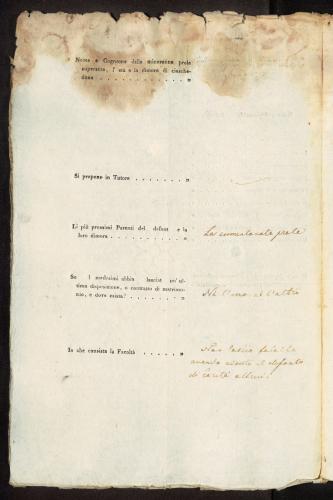 Nome e Cognome della minorenne prole
superstite, l' età e la dimora di ciasche-
duno . . . . . . . . . . . . . „
Si propone in Tutore . . . . . . . . „
Li più prossimi Parenti del defunt e la
loro dimora . . . . . . . . . . . „
La summenzionata prole
Se i medesimi abbia lasciat un' ul-
tima disposizione, o contratto di matrimo-
nio, e dove esista? . . . . . . . . „
Nè l'uno nè l'altro
In che consista la Facoltà . . . . . . „
il defonto
di carità